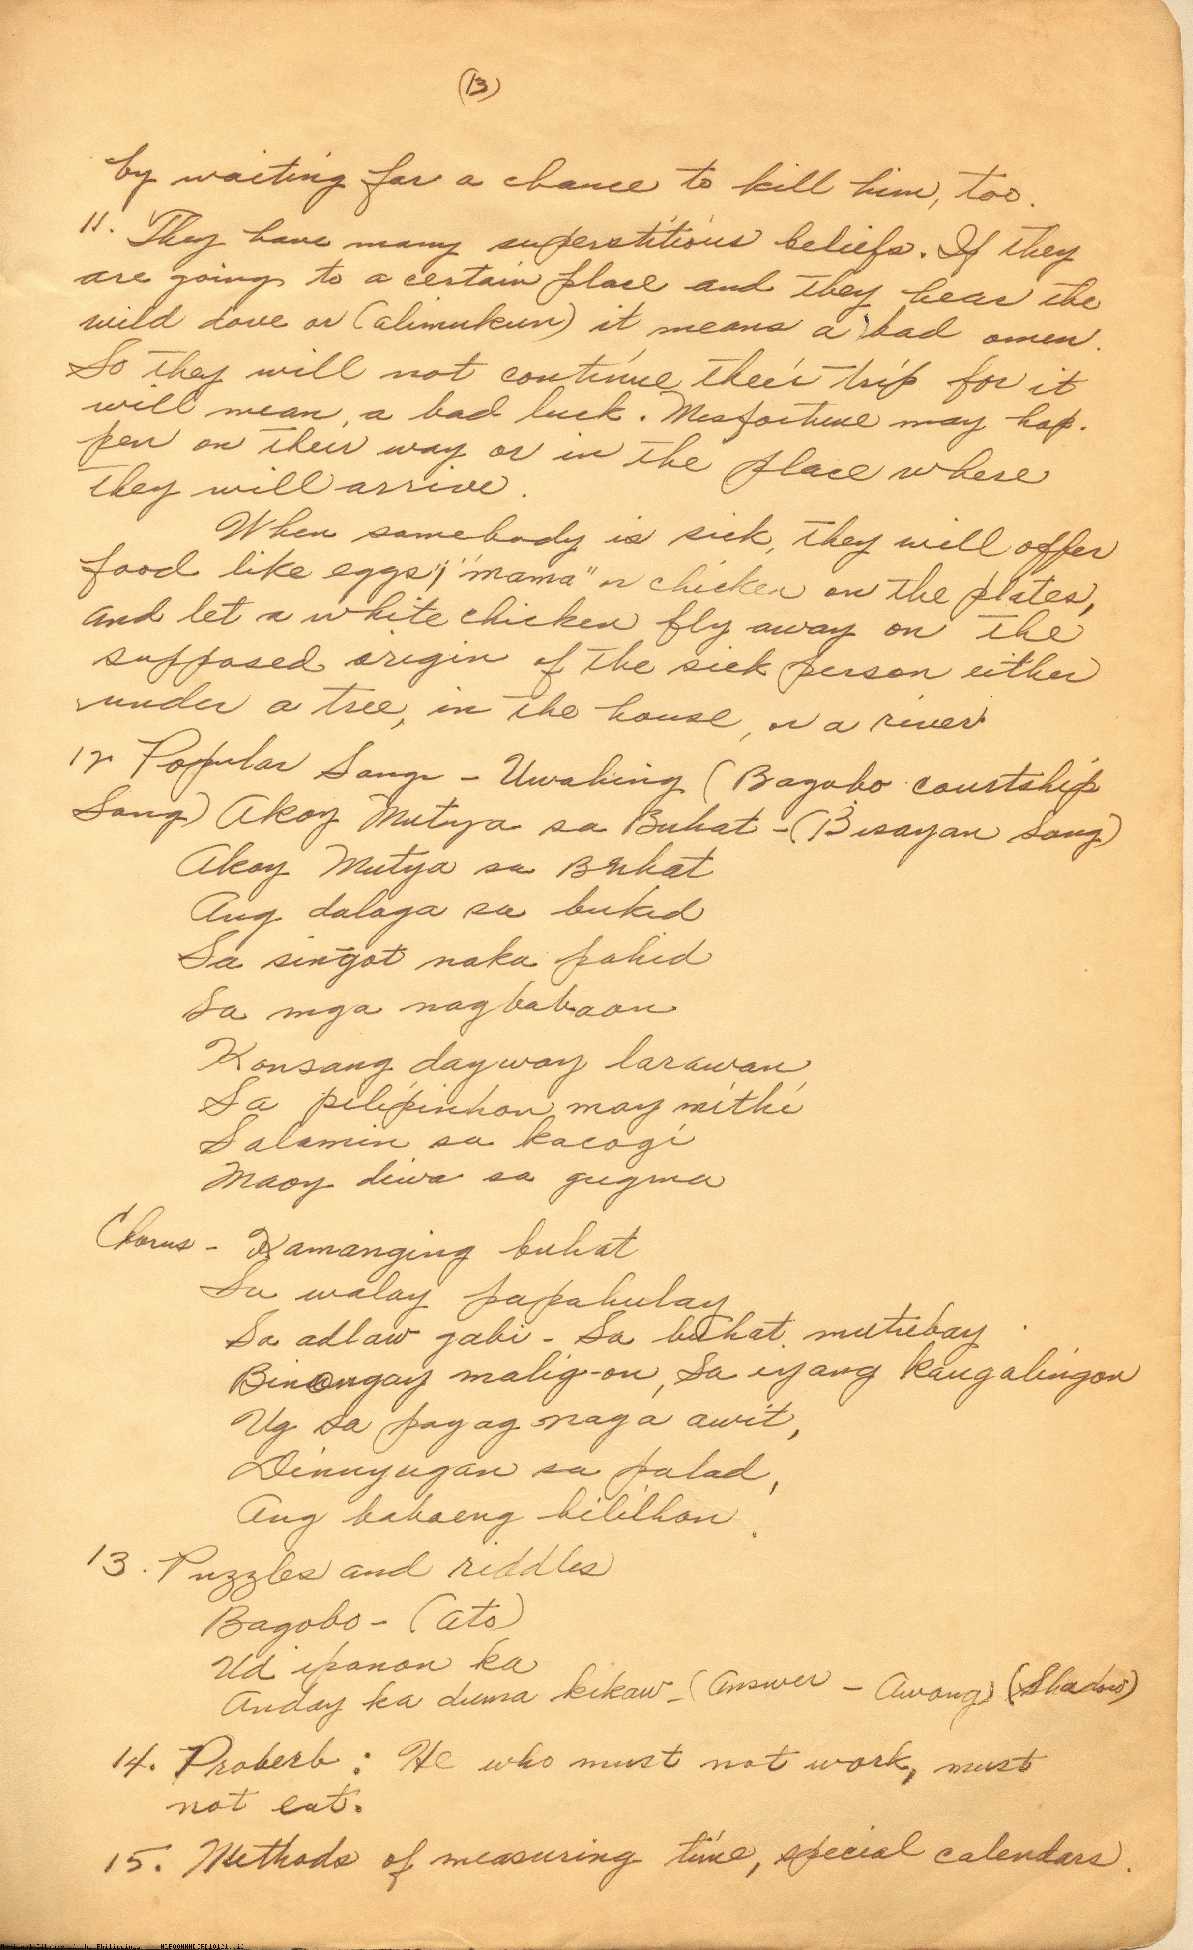 (13)
by waiting for a chance to kill him, too.
11. They have many superstitious beliefs. If they
are going to a certain place and they hear the
wild dove or (alimukun) it means a bad omen.
So they will not continue their trip for it
will mean a bad luck. Misfortune may hap-
pen on their way or in the place where
they will arrive.
When somebody is sick, they will offer
food like eggs, "mama" or chicken on the plates,
and let a white chicken fly away on the
supposed origin of the sick person either
under a tree, in the house, or a river.
12 Popular Songs - Uwahing (Bagobo courtship
Song) Akoy Mutya sa Buhat - (Bisayan Song)
Akoy Mutya sa Buhat
Ang dalaga sa bukid
Sa singot naka pahid
Sa mga nagbabaon
Konsang dayway larawan
Sa pilipinhon may mithi
Salamin sa kacogi
Maoy diwa sa gugma
Chorus - Kamanging buhat
Sa walay papahulay
Sa adlaw gabi - Sa buhat mutubay
Binongay malig-on, Sa iyang kaugalingon
Ug sa payag naga awit,
Dinuyugan sa palad,
Ang babaeng bililhon.
13. Puzzles and riddles
Bagobo - (Ato)
Ud ipanon ka
Anday ka duma kikaw - (Answer - Awong) (Shadow)
14. Proberb: He who must not work, must
not eat.
15. Methods of measuring time, special calendars.